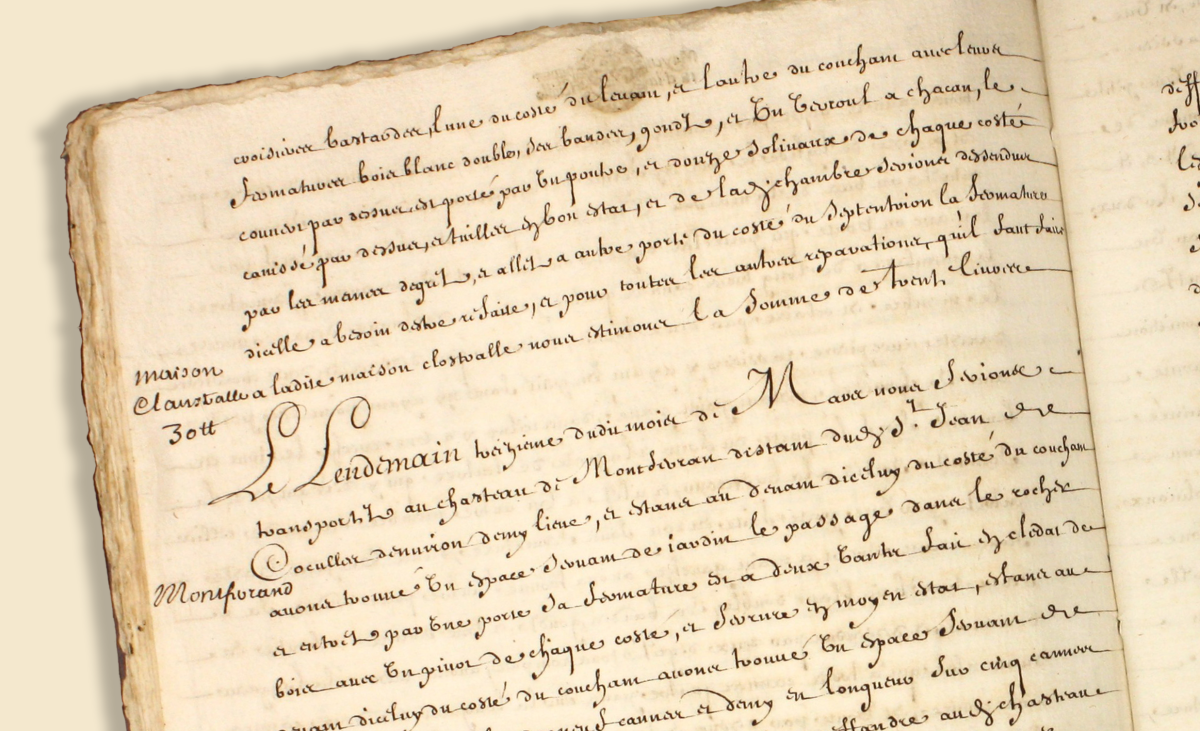 croisieres bastardes, l'une du costé du levam, et l'autre du coucham avec leurs
fermatures bois blanc doubles, ses bandes, gondz, et Un Verroul a chacun, le
couvert par dessus est porté par Un poutre, et douze solivaux de chaque costé
canissé par dessus, et tuilles en bon estat, et de lad. chambre serions dessendus
par les mesmes degrez, et allez a autre porte du costé du septentrion la fermature
dicelle a besoin destre refaite, et pour toutes les autres reparations, qu'il faut faire
maison
Claustralle
30tt
a ladite maison clostralle nous estimons la somme de trent' livres
Le Lendemain treizieme dudit mois de Mars nous serions
transportéz au chasteau de Montferran distam dud. St. Jean de
Coculles denviron demy lieue, et estans au devam diceluy du costé du coucham
Montferrand
avons trouvé Un espace servam de jardin le passage dans le rocher
et entrét par Une porte sa fermature est a deux Vantz fait en cledat de
bois avec Un pivot de chaque costé, et serrure en moyen estat, estans au
devam diceluy du costé du coucham avons trouvé Un espace servam de
cannes et demy en longueur sur cinq cannes
aud. chasteau